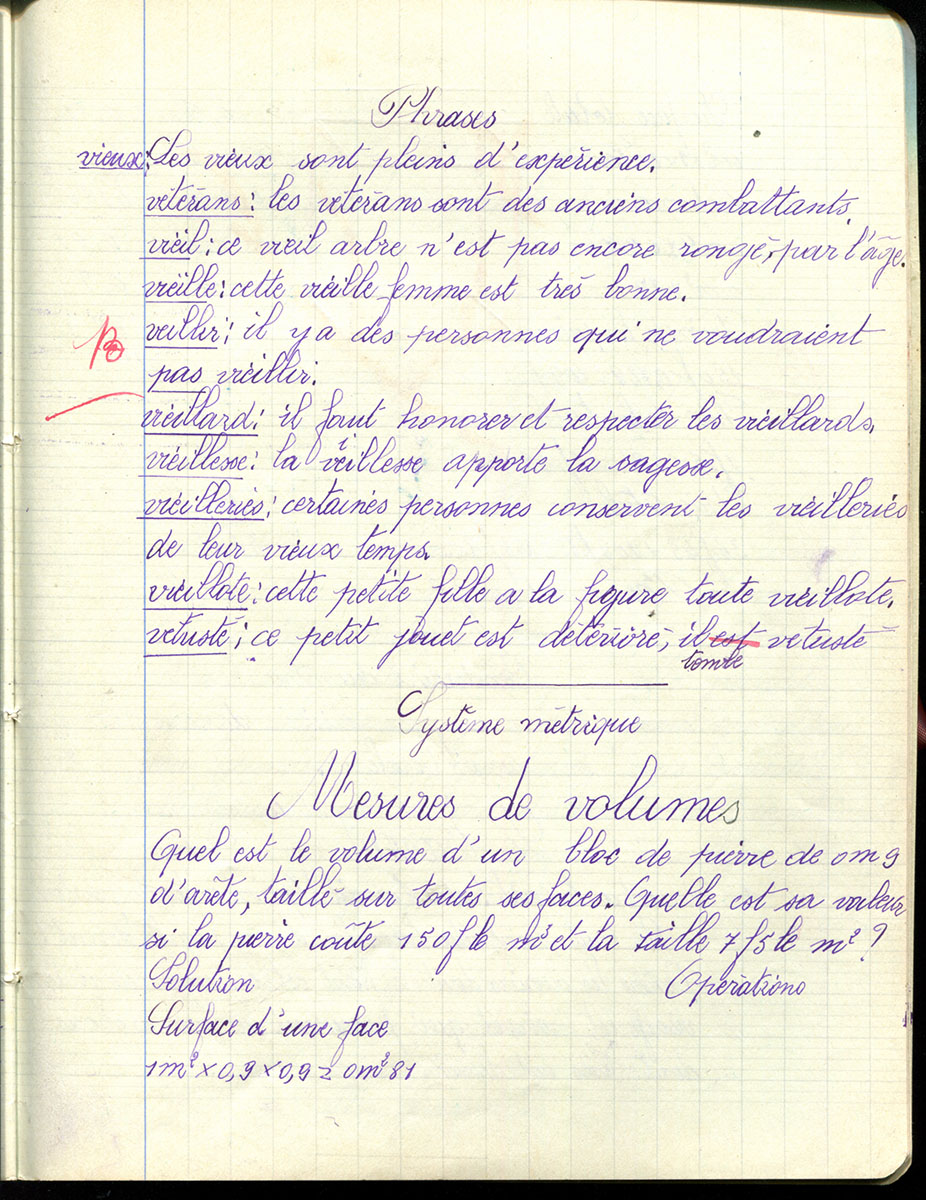 Phrases
vieux: Les vieux sont pleins d'expérience.
vétérans: les vétérans sont des anciens combattants.
vieil: ce vieil arbre n'est pas encore rongé, par l'âge.
vieille: cette vieille femme est très bonne.
veillir: il y a des personnes qui ne voudraient
pas vieillir.
vieillard: il faut honorer et respecter les vieillards.
vieillesse: la vieillesse apporte la sagesse.
vieilleries: certaines personnes conservent les vieilleries
de leur vieux temps.
vieillote: cette petite fille a la figure toute vieillote.
vetusté: ce petit jouet est détérioré, il est vetusté
tombe
Système métrique
Mesures de volumes
Quel est le volume d'un bloc de pierre de 0m9
d'arête, taillé sur toutes ses faces. Quelle est sa valeur
si la pierre coûte 150f le m³ et la taille 7f5 le m² ?
Solution Opérations
Surface d'une face
1m² × 0,9 × 0,9 = 0m²81